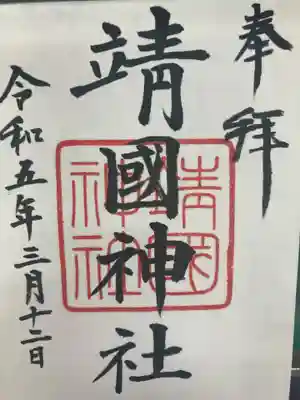 奉拝
靖國神社
令和五年三月十二日
靖国
神社